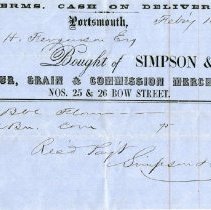 ERMS, CASH ON DELIVER
Portsmouth, Feby 1
H. Ferguson Esq
Bought of SIMPSON &
UR, GRAIN & COMMISSION MERCH
NOS. 25 & 26 BOW STREET.
Bbl Flour
Bu. Corn 95
Recd Payt
Simpson